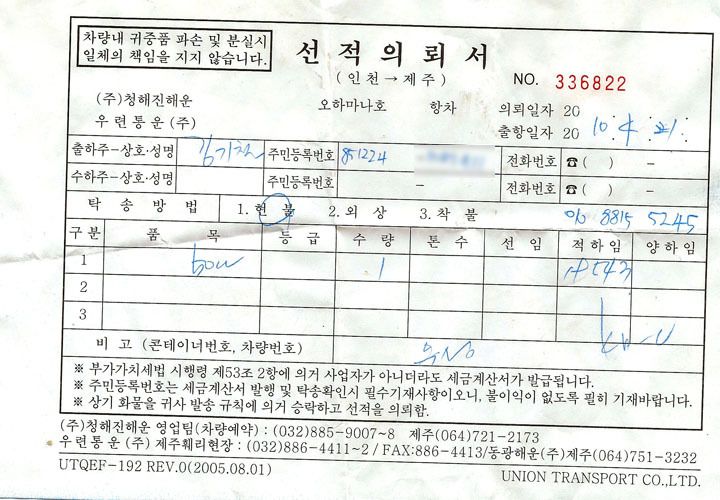 차량내 귀중품 파손 및 분실시
일체의 책임을 지지 않습니다.
선적의뢰서
(인천→제주)
NO. 336822
(주)청해진해운 오하마나호 항차 의뢰일자 20
우련통운(주) 출항일자 20 10. 4. 21.
출하주-상호·성명 주민등록번호 851224 전화번호 ☎( ) -
수하주-상호·성명 주민등록번호 - 전화번호 ☎( ) -
탁송방법 1.현불 2.외상 3.착불 010 8815 5245
구분 품목 등급 수량 톤수 선임 적하임 양하임
1 bow 1
2
3
비고 (콘테이너번호, 차량번호)
※ 부가가치세법 시행령 제53조 2항에 의거 사업자가 아니더라도 세금계산서가 발급됩니다.
※ 주민등록번호는 세금계산서 발행 및 탁송확인시 필수기재사항이오니, 불이익이 없도록 필히 기재바랍니다.
※ 상기 화물을 귀사 발송 규칙에 의거 승락하고 선적을 의뢰함.
(주)청해진해운 영업팀(차량예약) : (032)885-9007~8 제주(064)721-2173
우련통운(주) 제주훼리현장 : (032)886-4411~2 / FAX:886-4413/동광해운(주)제주(064)751-3232
UTQEF-192 REV.0(2005.08.01) UNION TRANSPORT CO.,LTD.